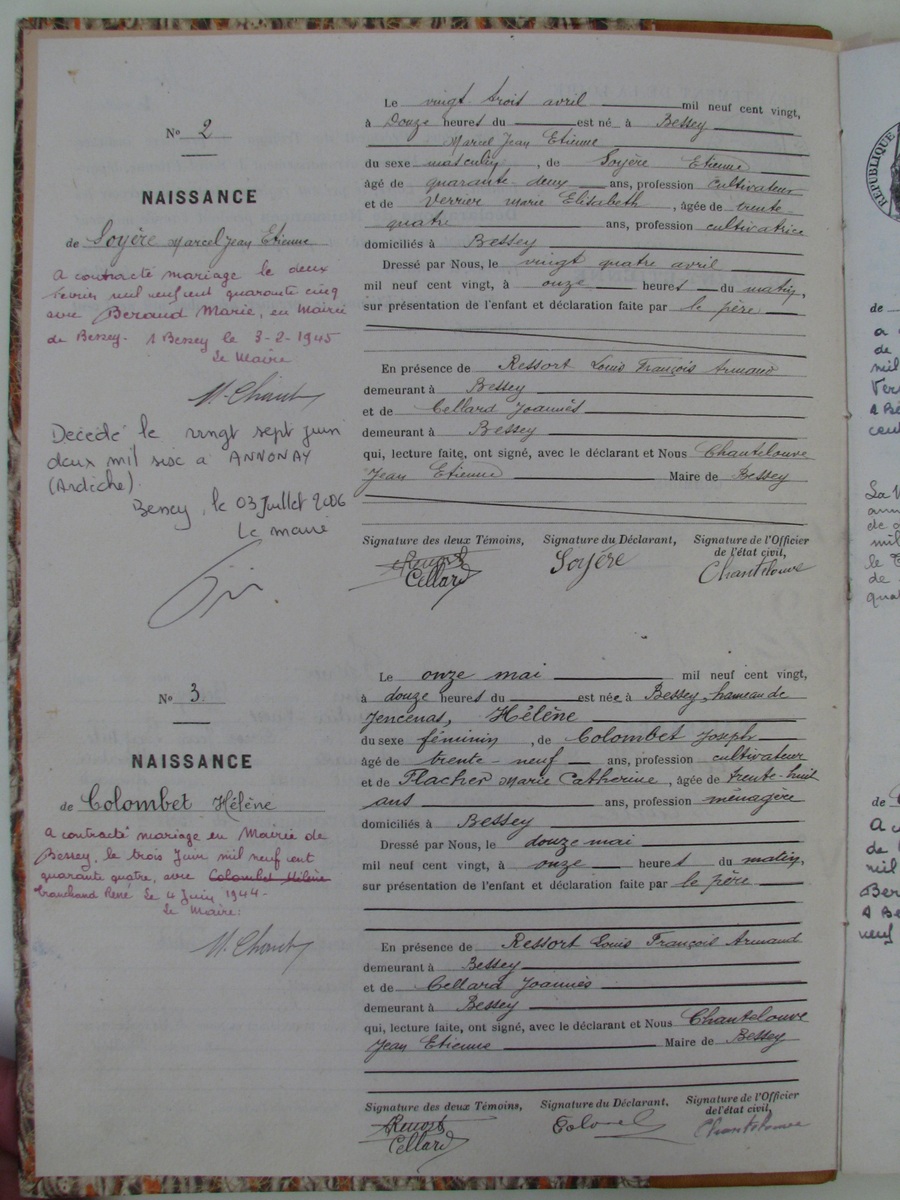 Nº 2
NAISSANCE
de Soyère Marcel Jean Etienne
a contracté mariage le deux
février mil neuf cent quarante cinq
avec Beraud Marie, en Mairie
de Bessey. A Bessey le 3-2-1945
Le Maire
Décédé le vingt sept juin
deux mil six à ANNONAY
(Ardèche).
Bessey, le 03 Juillet 2006
Le maire
Le vingt trois avril mil neuf cent vingt,
à Douze heures du est né à Bessey
Marcel Jean Etienne
du sexe masculin, de Soyère Etienne
âgé de quarante-deux ans, profession cultivateur
et de Verrier Marie Elisabeth, âgée de trente-
quatre ans, profession cultivatrice
domiciliés à Bessey
Dressé par Nous, le vingt quatre avril
mil neuf cent vingt, à onze heures du matin,
sur présentation de l'enfant et déclaration faite par le père
En présence de Ressort Louis François Armand
demeurant à Bessey
et de Cellard Joannès
demeurant à Bessey
qui, lecture faite, ont signé, avec le déclarant et Nous Chantelouve
Jean Etienne Maire de Bessey
Signature des deux Témoins, Signature du Déclarant, Signature de l'Officier
de l'état civil,
Ressort
Cellard Soyère Chantelouve
Nº 3
NAISSANCE
de Colombet Hélène
a contracté mariage en Mairie de
Bessey, le trois Juin mil neuf cent
quarante quatre, avec Colombet Hélène
Tranchand René. Le 4 Juin 1944-
Le Maire:
Le onze mai mil neuf cent vingt,
à douze heures du est née à Bessey, hameau de
Jencenas, Hélène
du sexe féminin, de Colombet Joseph
âgé de trente-neuf ans, profession cultivateur
et de Flacher Marie Catherine, âgée de trente-huit
ans ans, profession ménagère
domiciliés à Bessey
Dressé par Nous, le douze mai
mil neuf cent vingt, à onze heures du matin,
sur présentation de l'enfant et déclaration faite par le père
En présence de Ressort Louis François Armand
demeurant à Bessey
et de Cellard Joannès
demeurant à Bessey
qui, lecture faite, ont signé, avec le déclarant et Nous Chantelouve
Jean Etienne Maire de Bessey
Signature des deux Témoins, Signature du Déclarant, Signature de l'Officier
de l'état civil,
Ressort
Cellard Chantelouve